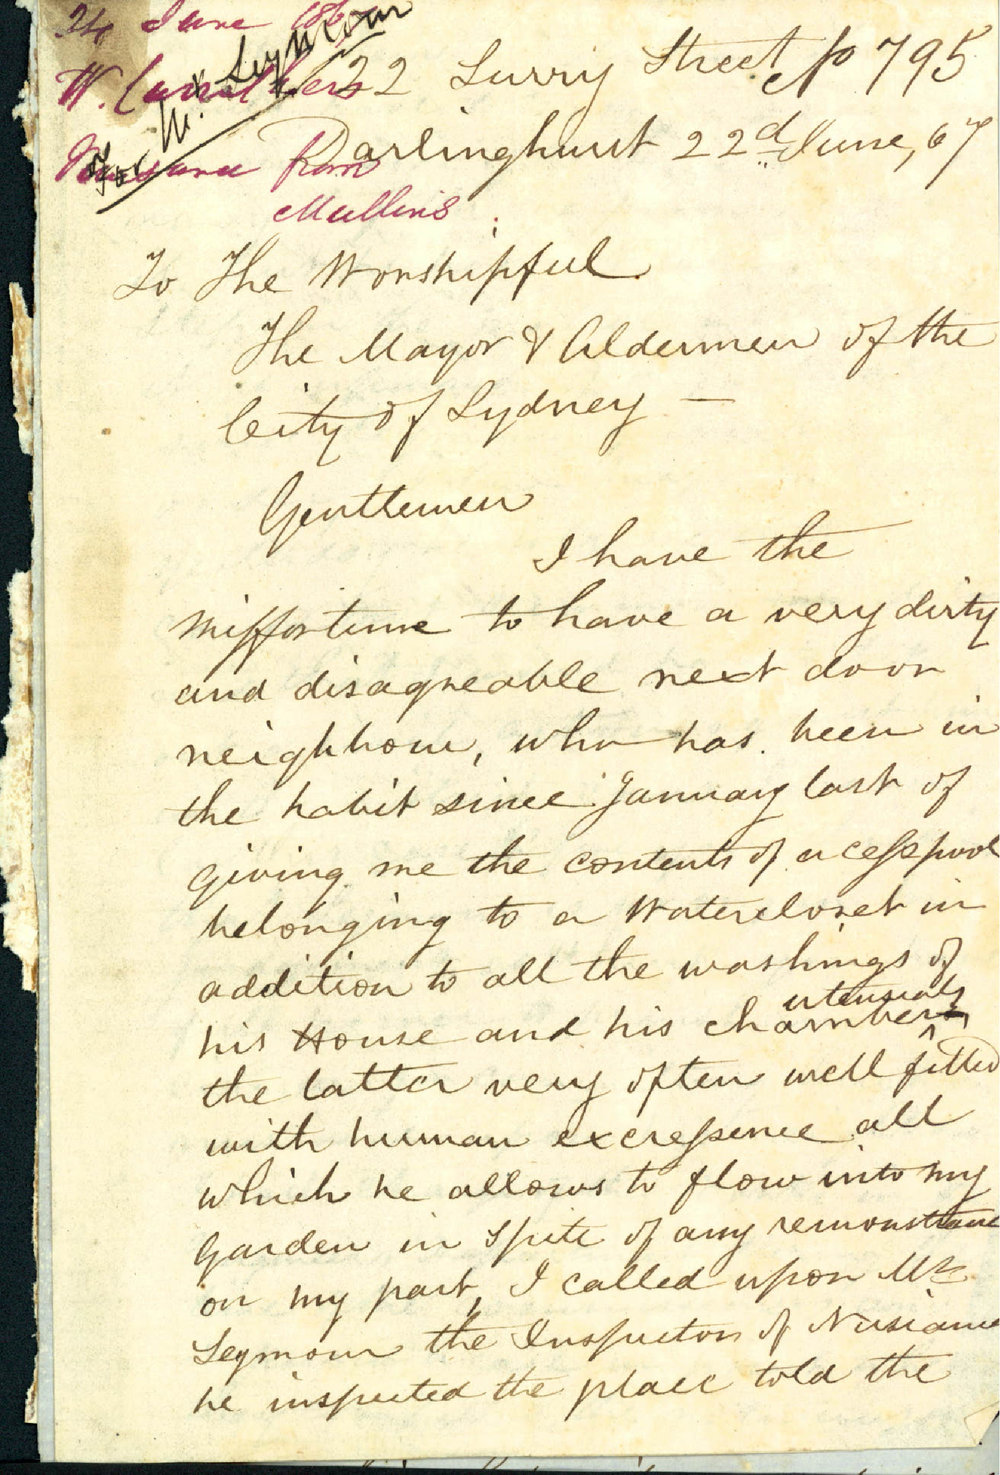 24 June 186
W. Carruthers
Nuisance from
Mullins
For Mr Seymour
22 Surry Street No 795
Darlinghurst 22d June, 67
To The Worshipful
The Mayor & Aldermen of the
City of Sydney —
Gentlemen
I have the
Misfortune to have a very dirty
and disagreable next door
neighbour, who has been in
the habit since January last of
giving me the contents of a cesspool
belonging to a Watercloset in
addition to all the washings of
his House and his chamber utensials
the latter very often well filled
with human excressence all
which he allows to flow into my
Garden in spite of any remonstrance
on my part, I called upon Mr
Seymour the Inspector of Nusiance
he inspected the place told the